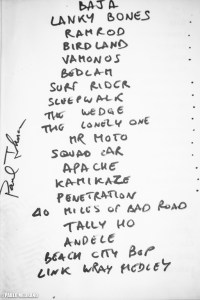 BAJA
LANKY BONES
RAMROD
BIRDLAND
VAMONOS
BEDLAM
SURF RIDER
SLEEPWALK
THE WEDGE
THE LONELY ONE
MR MOTO
SQUAD CAR
APACHE
KAMIKAZE
PENETRATION
40 MILES OF BAD ROAD
TALLY HO
ANDELE
BEACH CITY BOP
LINK WRAY MEDLEY
Paul